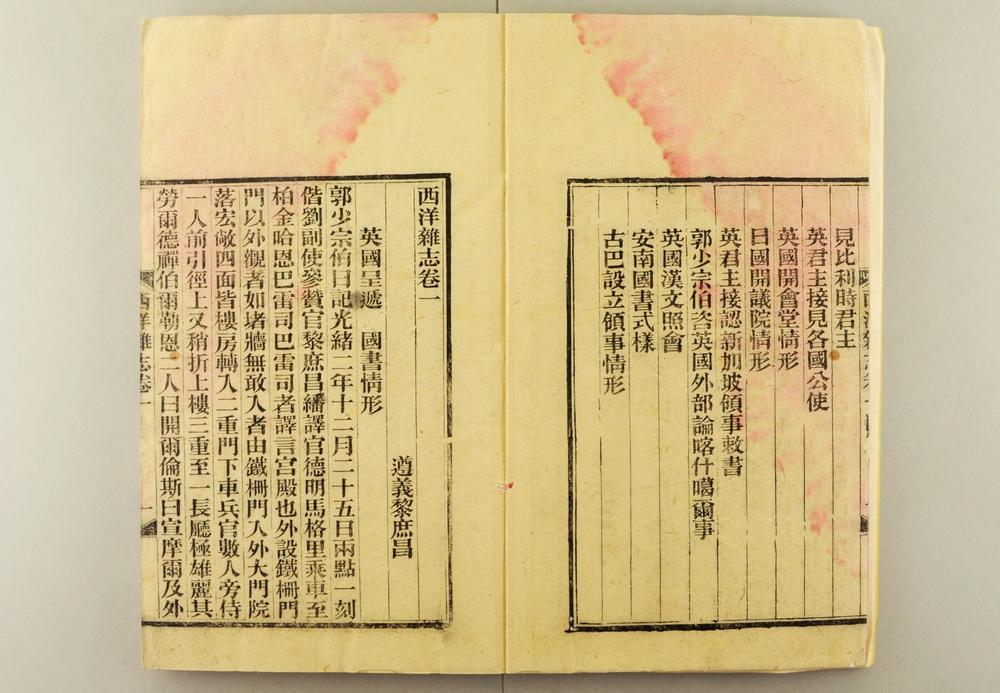 見比利時君主
英君主接見各國公使
英國開會堂情形
日國開議院情形
英君主接認新加坡領事敕書
郭少宗伯咨英國外部論喀什噶爾事
英國漢文照會
安南國書式樣
古巴設立領事情形
西洋雜志卷一
遵義黎庶昌
英國呈遞　國書情形
郭少宗伯日記光緒二年十二月二十五日兩點一刻
偕劉副使參贊官黎庶昌繙譯官德明馬格里乘車至
柏金哈恩巴雷司巴雷司者譯言宮殿也外設鐵柵門
門以外觀者如堵牆無敢入者由鐵柵門入外大門院
落宏敞四面皆樓房轉入二重門下車兵官數人旁侍
一人前引徑上又稍折上樓三重至一長廳極雄麗其
勞爾德禪伯爾勒恩二人曰開爾倫斯曰宣摩爾及外
西洋雜志卷一
一